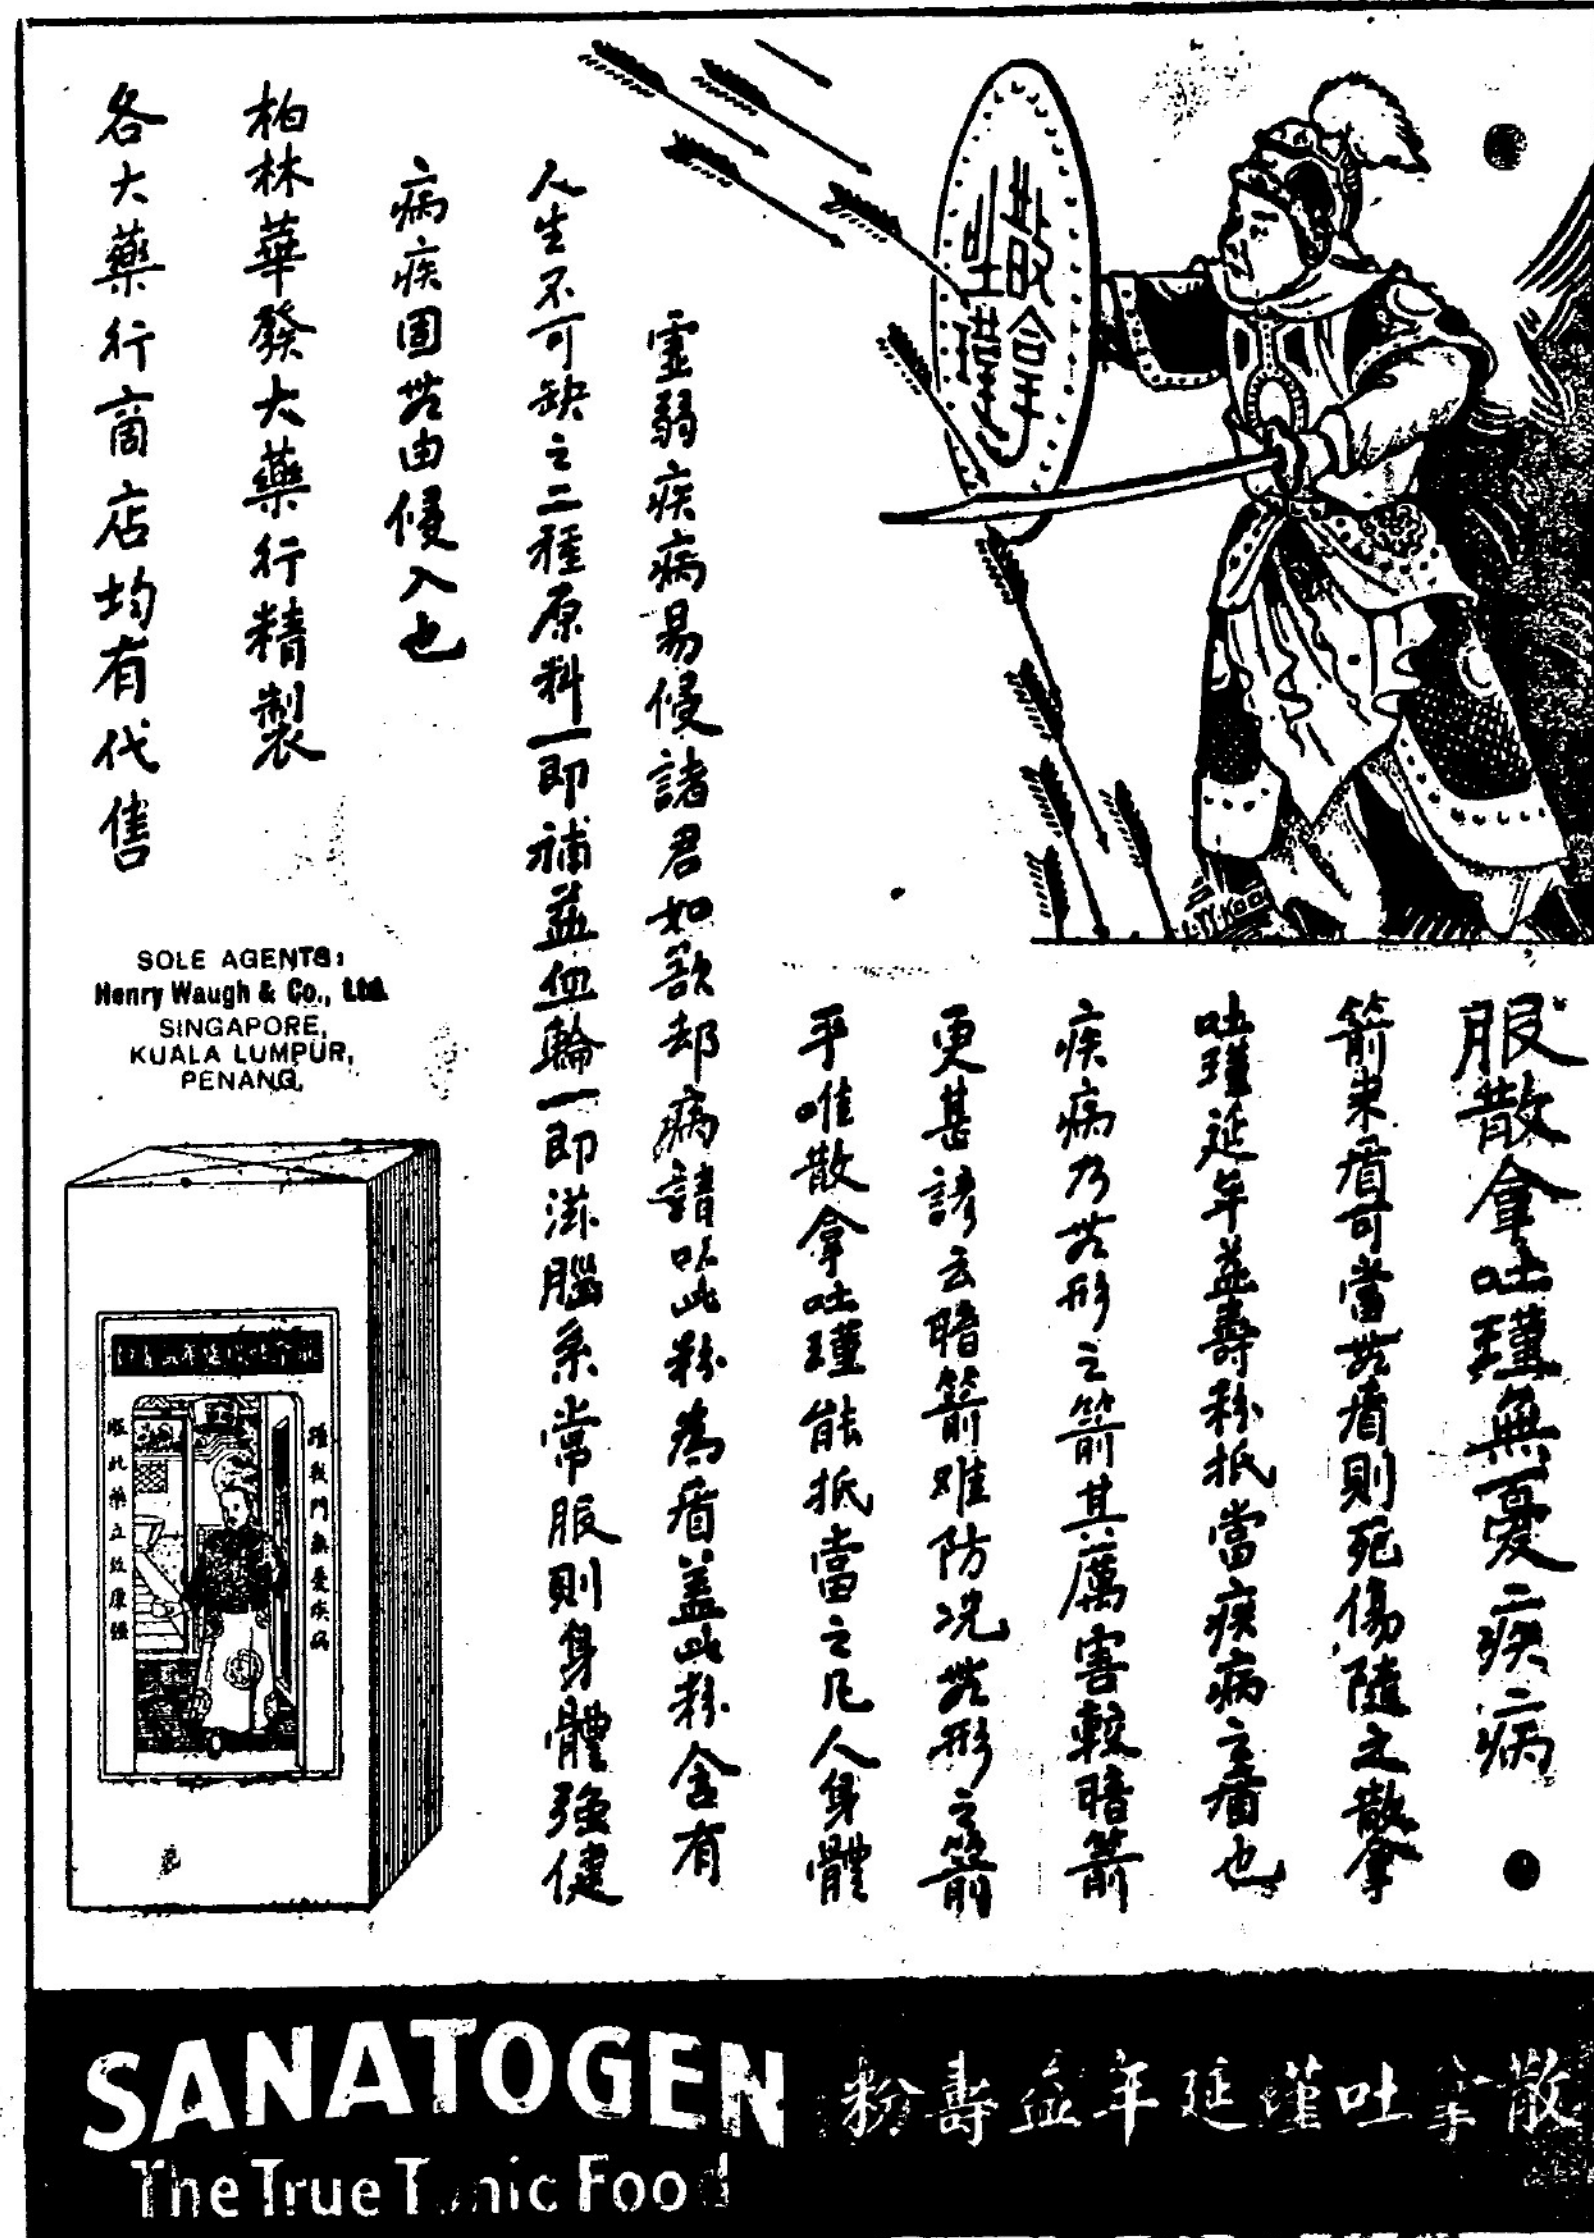 散拿
吐瑾
L.Y.Y.KOO
服散拿吐瑾無憂疾病
箭來盾可當苦無盾則死傷隨之散拿
吐瑾延年益壽粉抵當疾病之盾也
疾病乃無形之箭其厲害較暗箭
更甚諺云暗箭难防况無形之箭
乎唯散拿吐瑾能抵當之凡人身體
虛弱疾病易侵諸君如欲却病請以此粉為盾盖此粉含有
人生不可缺之二種原料一即補益血輪一即滋腦系常服則身體強健
病疾固無由侵入也
柏林華發大藥行精製
各大藥行商店均有代售
SOLE AGENTS:
Henry Waugh & Co., Ltd.
SINGAPORE,
KUALA LUMPUR,
PENANG.
進我門無憂疾病
服此藥立致康強
SANATOGEN
The True Tonic Food
散拿吐瑾延年益壽粉